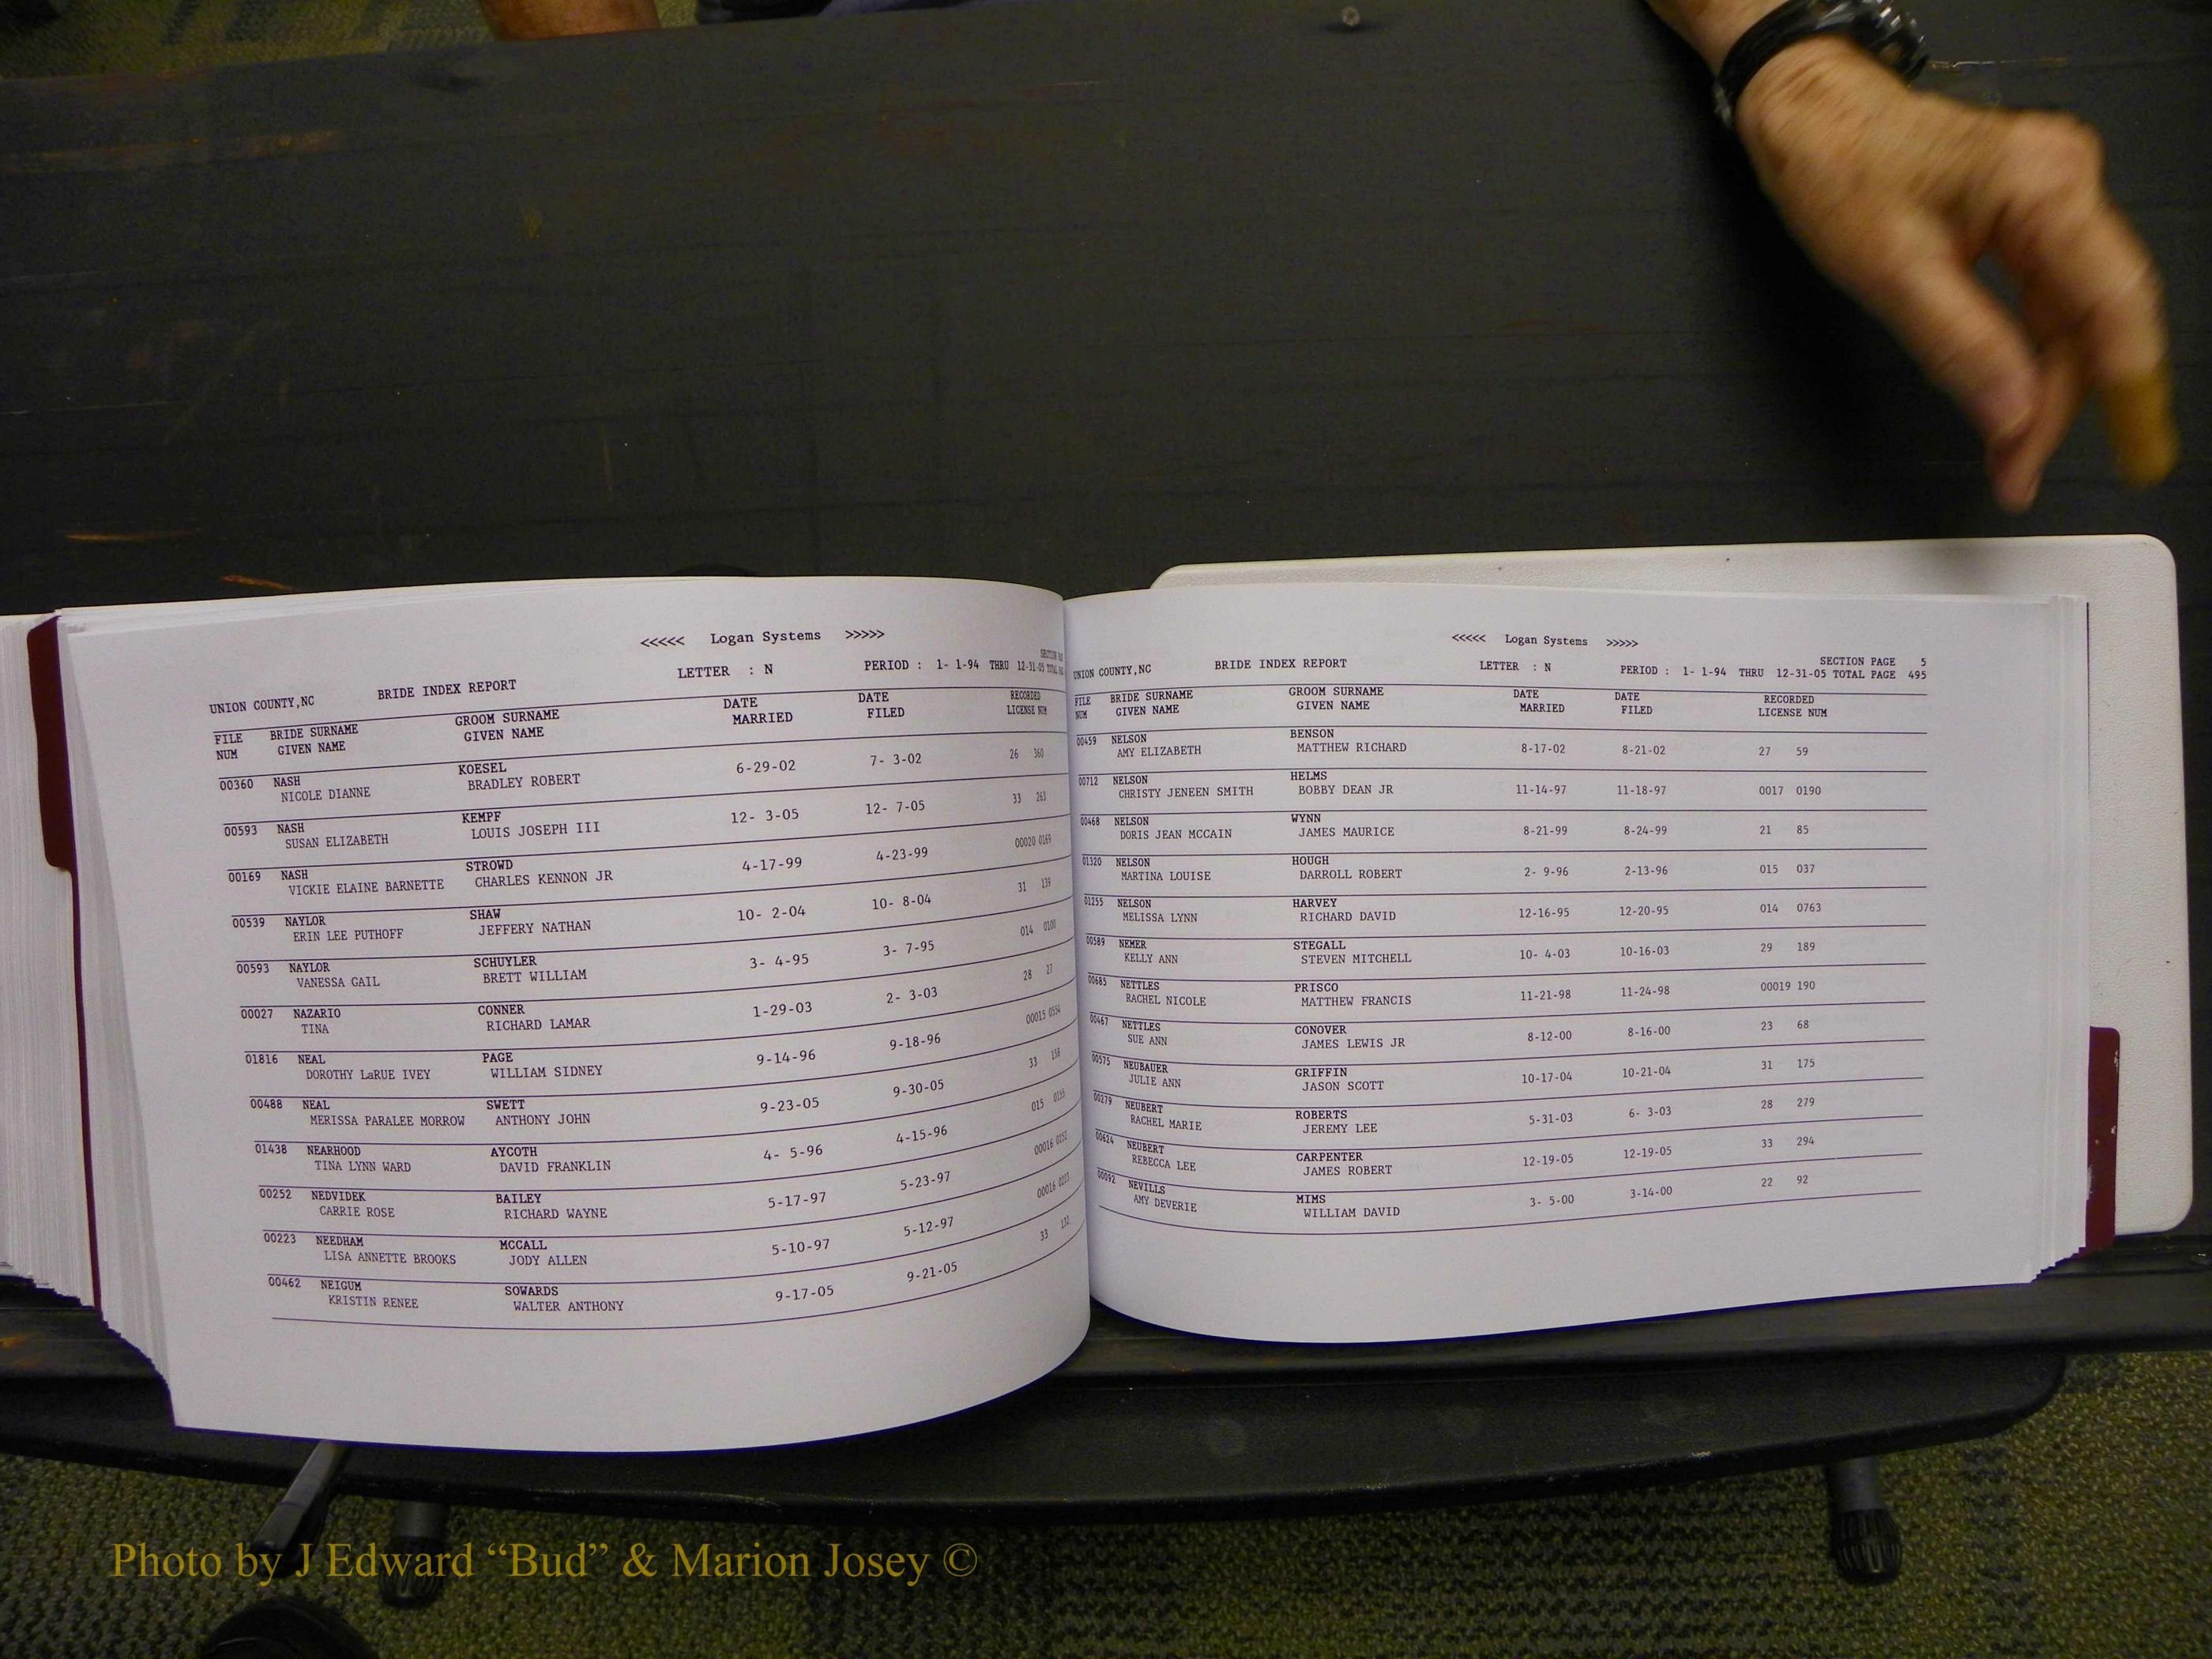 <<<<< Logan Systems >>>>>
UNION COUNTY,NC BRIDE INDEX REPORT LETTER : N PERIOD : 1- 1-94 THRU 12-31-05
FILE BRIDE SURNAME GROOM SURNAME DATE DATE RECORDED
NUM GIVEN NAME GIVEN NAME MARRIED FILED LICENSE NUM
00360 NASH KOESEL 6-29-02 7- 3-02 26 360
NICOLE DIANNE BRADLEY ROBERT
00593 NASH KEMPF 12- 3-05 12- 7-05 33 263
SUSAN ELIZABETH LOUIS JOSEPH III
00169 NASH STROWD 4-17-99 4-23-99 00020 0169
VICKIE ELAINE BARNETTE CHARLES KENNON JR
00539 NAYLOR SHAW 10- 2-04 10- 8-04 31 139
ERIN LEE PUTHOFF JEFFERY NATHAN
00593 NAYLOR SCHUYLER 3- 4-95 3- 7-95 014 0100
VANESSA GAIL BRETT WILLIAM
00027 NAZARIO CONNER 1-29-03 2- 3-03 28 27
TINA RICHARD LAMAR
01816 NEAL PAGE 9-14-96 9-18-96 00015
DOROTHY LaRUE IVEY WILLIAM SIDNEY
00488 NEAL SWETT 9-23-05 9-30-05 33 158
MERISSA PARALEE MORROW ANTHONY JOHN
01438 NEARHOOD AYCOTH 4- 5-96 4-15-96 015 0155
TINA LYNN WARD DAVID FRANKLIN
00252 NEDVIDEK BAILEY 5-17-97 5-23-97 00016
CARRIE ROSE RICHARD WAYNE
00223 NEEDHAM MCCALL 5-10-97 5-12-97 00016
LISA ANNETTE BROOKS JODY ALLEN
00462 NEIGUM SOWARDS 9-17-05 9-21-05 33
KRISTIN RENEE WALTER ANTHONY
<<<<< Logan Systems >>>>>
SECTION PAGE 5
UNION COUNTY,NC BRIDE INDEX REPORT LETTER : N PERIOD : 1- 1-94 THRU 12-31-05 TOTAL PAGE 495
FILE BRIDE SURNAME GROOM SURNAME DATE DATE RECORDED
NUM GIVEN NAME GIVEN NAME MARRIED FILED LICENSE NUM
00459 NELSON BENSON 8-17-02 8-21-02 27 59
AMY ELIZABETH MATTHEW RICHARD
00712 NELSON HELMS 11-14-97 11-18-97 0017 0190
CHRISTY JENEEN SMITH BOBBY DEAN JR
00468 NELSON WYNN 8-21-99 8-24-99 21 85
DORIS JEAN MCCAIN JAMES MAURICE
01320 NELSON HOUGH 2- 9-96 2-13-96 015 037
MARTINA LOUISE DARROLL ROBERT
01255 NELSON HARVEY 12-16-95 12-20-95 014 0763
MELISSA LYNN RICHARD DAVID
00589 NEMER STEGALL 10- 4-03 10-16-03 29 189
KELLY ANN STEVEN MITCHELL
00685 NETTLES PRISCO 11-21-98 11-24-98 00019 190
RACHEL NICOLE MATTHEW FRANCIS
00467 NETTLES CONOVER 8-12-00 8-16-00 23 68
SUE ANN JAMES LEWIS JR
00575 NEUBAUER GRIFFIN 10-17-04 10-21-04 31 175
JULIE ANN JASON SCOTT
00279 NEUBERT ROBERTS 5-31-03 6- 3-03 28 279
RACHEL MARIE JEREMY LEE
00624 NEUBERT CARPENTER 12-19-05 12-19-05 33 294
REBECCA LEE JAMES ROBERT
00092 NEVILLS MIMS 3- 5-00 3-14-00 22 92
AMY DEVERIE WILLIAM DAVID
Photo by J Edward “Bud” & Marion Josey ©